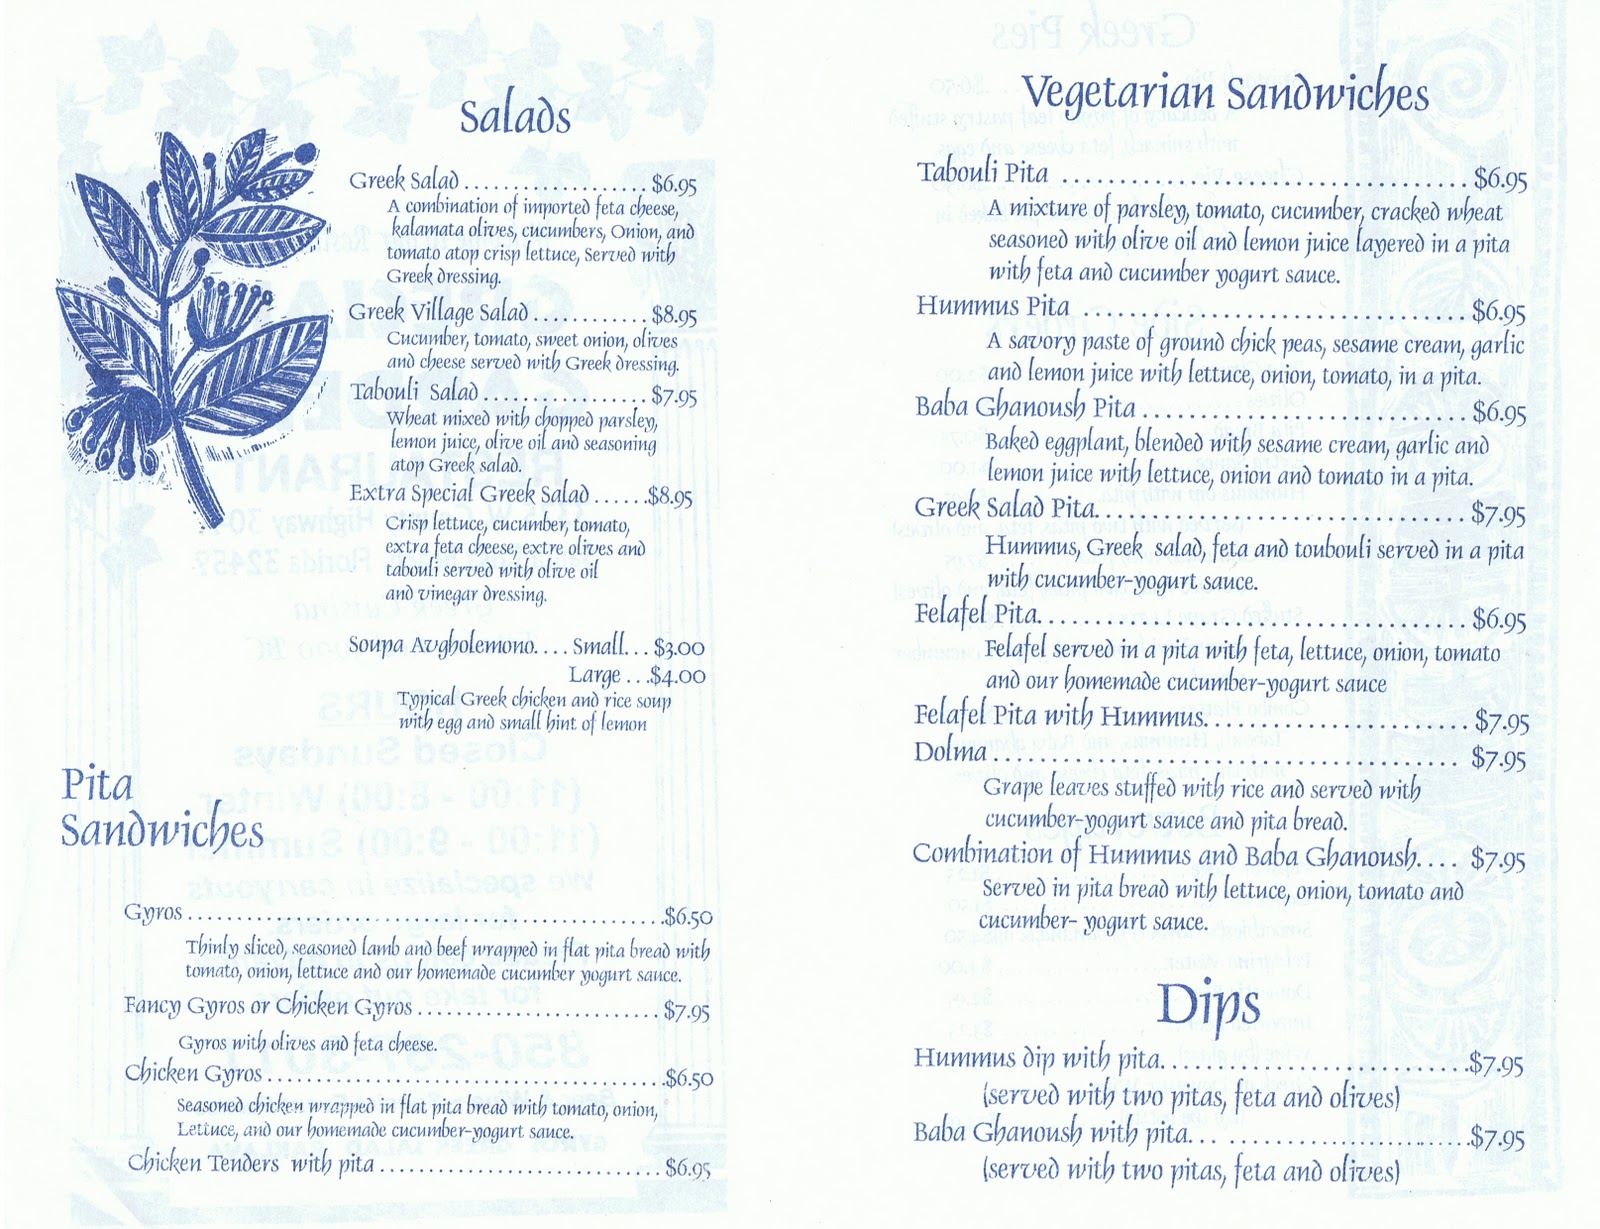 Salads
Greek Salad . . . . . . . . . . . . . . . . . . . $6.95
A combination of imported feta cheese,
kalamata olives, cucumbers, Onion, and
tomato atop crisp lettuce, Served with
Greek dressing.
Greek Village Salad . . . . . . . . . . . . $8.95
Cucumber, tomato, sweet onion, olives
and cheese served with Greek dressing.
Tabouli Salad . . . . . . . . . . . . . . . . . $7.95
Wheat mixed with chopped parsley,
lemon juice, olive oil and seasoning
atop Greek salad.
Extra Special Greek Salad . . . . . . $8.95
Crisp lettuce, cucumber, tomato,
extra feta cheese, extre olives and
tabouli served with olive oil
and vinegar dressing.
Soupa Avgholemono. . . . Small. . . $3.00
Large . . .$4.00
Typical Greek chicken and rice soup
with egg and small hint of lemon
Pita
Sandwiches
Gyros . . . . . . . . . . . . . . . . . . . . . . . . . . . . . . . . . . . . $6.50
Thinly sliced, seasoned lamb and beef wrapped in flat pita bread with
tomato, onion, lettuce and our homemade cucumber yogurt sauce.
Fancy Gyros or Chicken Gyros . . . . . . . . . . . . . . . . . . $7.95
Gyros with olives and feta cheese.
Chicken Gyros . . . . . . . . . . . . . . . . . . . . . . . . . . . . . . $6.50
Seasoned chicken wrapped in flat pita bread with tomato, onion,
Lettuce, and our homemade cucumber-yogurt sauce.
Chicken Tenders with pita . . . . . . . . . . . . . . . . . . . . . $6.95
Vegetarian Sandwiches
Tabouli Pita . . . . . . . . . . . . . . . . . . . . . . . . . . . . . . . . $6.95
A mixture of parsley, tomato, cucumber, cracked wheat
seasoned with olive oil and lemon juice layered in a pita
with feta and cucumber yogurt sauce.
Hummus Pita . . . . . . . . . . . . . . . . . . . . . . . . . . . . . . $6.95
A savory paste of ground chick peas, sesame cream, garlic
and lemon juice with lettuce, onion, tomato, in a pita.
Baba Ghanoush Pita . . . . . . . . . . . . . . . . . . . . . . . . . $6.95
Baked eggplant, blended with sesame cream, garlic and
lemon juice with lettuce, onion and tomato in a pita.
Greek Salad Pita. . . . . . . . . . . . . . . . . . . . . . . . . . . . . $7.95
Hummus, Greek salad, feta and toubouli served in a pita
with cucumber-yogurt sauce.
Felafel Pita. . . . . . . . . . . . . . . . . . . . . . . . . . . . . . . . . $6.95
Felafel served in a pita with feta, lettuce, onion, tomato
and our homemade cucumber-yogurt sauce
Felafel Pita with Hummus. . . . . . . . . . . . . . . . . . . . . $7.95
Dolma . . . . . . . . . . . . . . . . . . . . . . . . . . . . . . . . . . . . $7.95
Grape leaves stuffed with rice and served with
cucumber-yogurt sauce and pita bread.
Combination of Hummus and Baba Ghanoush. . . . $7.95
Served in pita bread with lettuce, onion, tomato and
cucumber- yogurt sauce.
Dips
Hummus dip with pita. . . . . . . . . . . . . . . . . . . . . . . . $7.95
(served with two pitas, feta and olives)
Baba Ghanoush with pita. . . . . . . . . . . . . . . . . . . . . . $7.95
(served with two pitas, feta and olives)